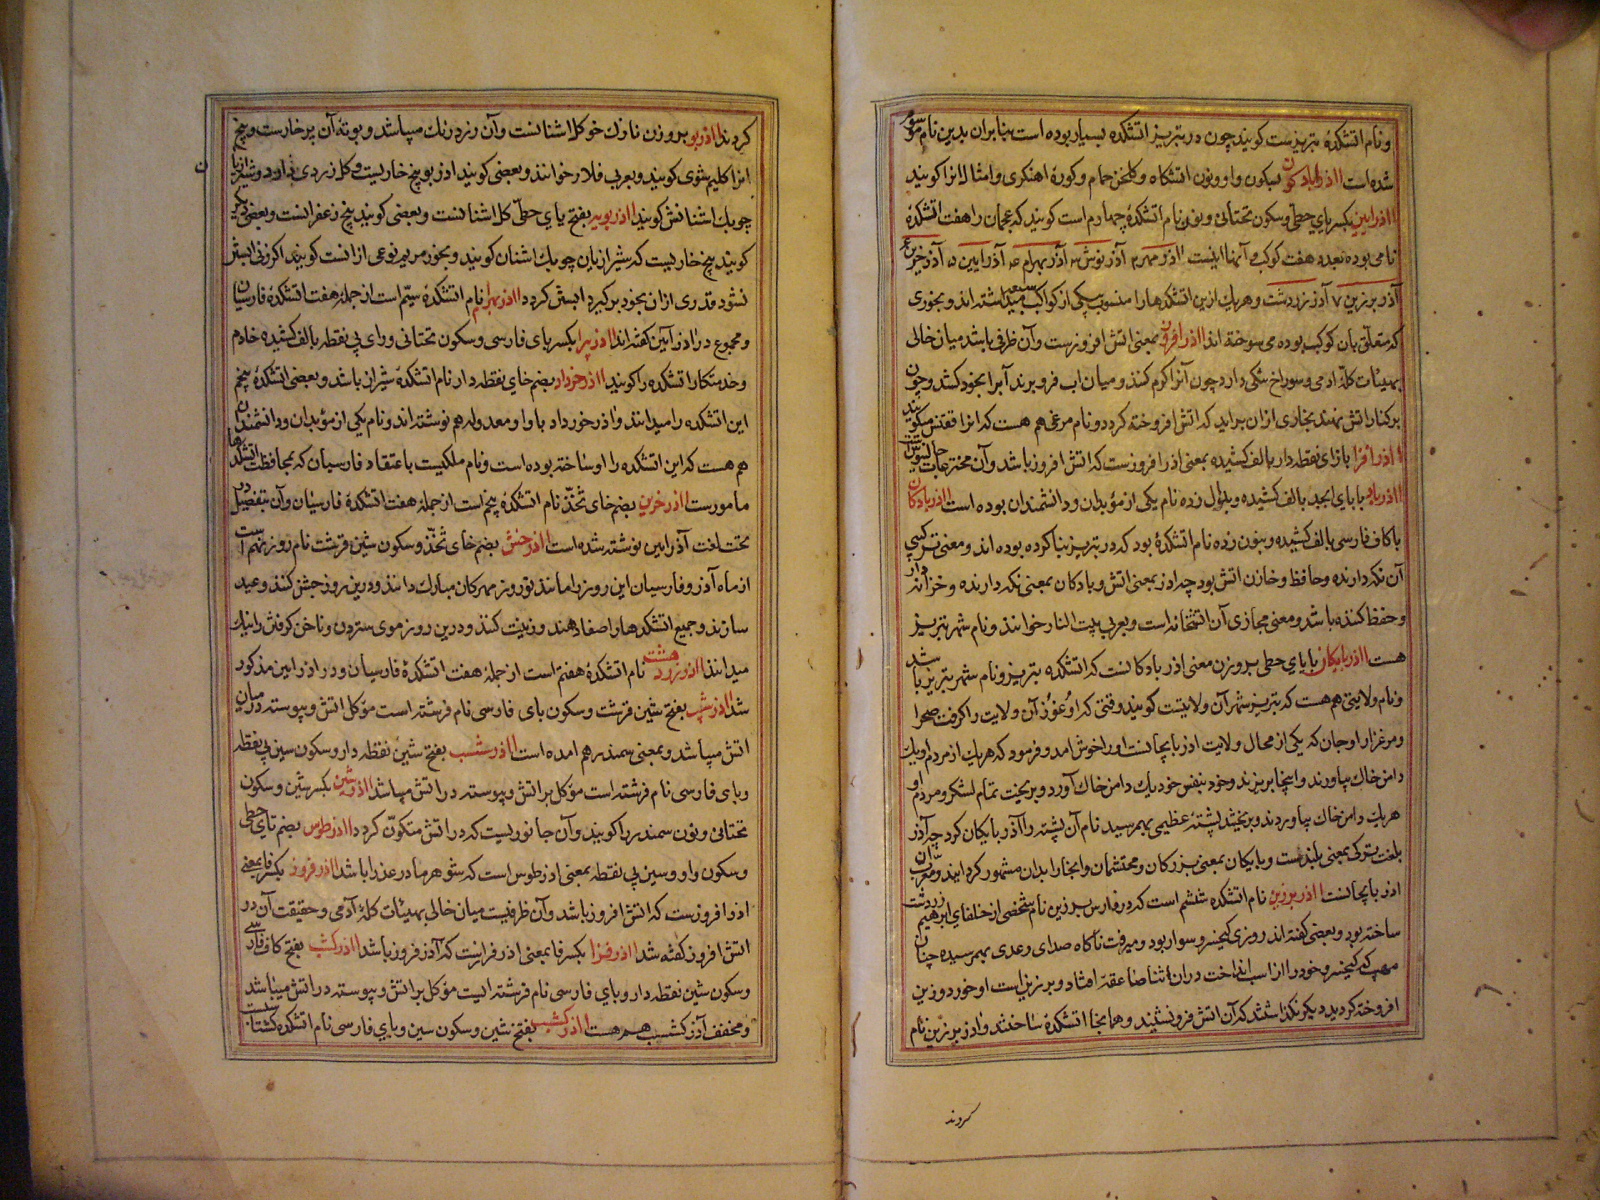 و نام اتشکدهٔ تبریزست کویند چون در تبریز اتشکده بسیار بوده است بنابران بدین نام موسوم
شده است آذرابادکون بسکون واو و نون اتشکاه و کلخن حمام و کورهٔ اهنکری و امثال انرا کویند
آذر ایین بکسر یای حطی و سکون تحتانی و نون نام اتشکدهٔ چهارم است کویند که عجمان را هفت اتشکدهٔ
نامی بوده بعدد هفت کوکب و آنها اینست آذر مهر ۲ آذر نوش ۳ آذر بهرام ۴ آذر ایین ۵ آذر خرین ۶
آذر برزین ۷ آذر زردشت و هریك ازین اتشکدها را منسوب بیکی از کواکب سبعه میداشته اند و بخوری
که متعلق بان کوکب بوده می سوخته اند آذر افروز بمعنی اتش افروزست وآن ظرفی باشد میان خالی
بهیئات کلهٔ ادمی و سوراخ تنکی دارد چون آنرا کرم کنند و میان اب فرو برند آب را بخود کشد و چون
بر کنار اتش نهند بخاری ازان براید که اتش افروخته کردد و نام مرغی هم هست که انرا ققنس میکویند
آذر افزا بازای نقطه دار بالف کشیده بمعنی اذر افروزست که اتش افروز باشد وآن مخترعات جالینوس
آذرباد بابای ابجد بالف کشیده و بدال زده نام یکی از مؤبدان و دانشمندان بوده است آذربادکان
با کاف فارسی بالف کشیده و بنون زده نام اتشکدهٔ بود که در تبریز بنا کرده بوده اند و معنی ترکیبی
آن نکه دارنده و حافظ و خازن اتش بود چه اذر بمعنی اتش و بادکان بمعنی نکه دارنده و خزانه دار
و حفظ کننده باشد و معنی مجازی آن اتشخانه است و بعربی بیت النار خوانند و نام شهر تبریز
هست آذربایکان با یای حطی بروزن و معنی اذربادکانست که اتشکده تبریز و نام شهر تبریز باشد
و نام ولایتی هم هست که تبریز شهر آن ولایتست کویند وقتی که اوغوز آن ولایت را کرفت صحرا
و مرغزار اوجان که یکی از محال ولایت اذربایجانست او را خوش امد و فرمود که هریك از مردم او یك
دامن خاك بیاورند و اینجا بریزند و خود بنفس خود یك دامن خاك آورد و بریخت تمام لشکر و مردم او
هریك دامن خاك بیاوردند و بریختند پشتهٔ عظیمی بهم رسید نام آن پشته را آذربایکان کرد چه آذر
بلغت ترکی بمعنی بلندست و بایکان بمعنی بزرکان و محتشمان و انجا را بدان مشهور کردانید و معرب آن
اذربایجانست آذر برزین نام اتشکده ششم است که در فارس برزین نام شخصی از خلفای ابرهیم زردشت
ساخته بود و بعضی کفته اند روزی کیخسرو سوار بود و میرفت ناکاه صدای رعدی بهم رسیده چنان
مهیب که کیخسرو خود را از اسب انداخت دران اثنا صاعقهٔ افتاد و بر زین اسب او خورد و زین
افروخته کردید دیکر نکذاشتند که آن اتش فرو نشیند و همانجا اتشکدهٔ ساختند و اذر برزین نام
کردند
کردند آذربو بروزن نازك خو کل اشنانست وآن زرد رنك میباشد و بوتهٔ آن پرخارست و بیخ
انرا کلیم شوی کویند و بعربی فلاد خوانند و بعضی کویند اذربو بیخ خاریست و کل زردی دارد و شیرازیان
چوبك اشنانش کویند آذربویه بفتح یای حطی کل اشنانست و بعضی کویند بیخ زعفرانست و بعضی دیکر
کویند بیخ خاریست که شیرازیان چوبك اشنان کویند و بخور مریم نوعی ازانست کویند اکر زنی ابستن
نشود قدری ازان بخود برکیرد ابستن کردد آذر بهرام نام اتشکدهٔ سیّم است از جملهٔ هفت اتشکدهٔ فارسیان
و مجموع در اذر آیین کفته اند آذرپرا بکسر بای فارسی و سکون تحتانی و رای بی نقطه بالف کشیده خادم
و خدمتکار اتشکده را کویند آذرخرداد بضم خای نقطه دار نام اتشکدهٔ شیراز باشد و بعضی اتشکدهٔ پنجم
این اتشکده را میدانند و اذر خورداد با واو معدوله هم نوشته اند و نام یکی از مؤبدان و دانشمندان
هم هست که این اتشکده را او ساخته بوده است و نام ملکیست باعتقاد فارسیان که بمحافظت اتشکدها
مامورست آذر خرین بضم خای ثخّذ نام اتشکدهٔ پنجم است از جملهٔ هفت اتشکدهٔ فارسیان وآن بتفصیل در
تحت لغت آذر ایین نوشته شده است آذرخش بضم خای ثخّذ و سکون شین قرشت نام روز نهم است
از ماه آذر و فارسیان این روز را مانند نوروز و مهرکان مبارك دانند و درین روز جشن کنند و عید
سازند و جمیع اتشکدها را صفا دهند و زینت کنند و درین روز موی ستردن و ناخن کرفتن را نیك
میدانند آذر زردهشت نام اتشکدهٔ هفتم است از جملهٔ هفت اتشکدهٔ فارسیان و در اذر ایین مذکور
شد آذرشپ بفتح شین قرشت و سکون بای فارسی نام فرشته است مؤکل اتش و پیوسته در میان
اتش میباشد و بمعنی سمندر هم امده است آذرشسب بفتح شین نقطه دار و سکون سین بی نقطه
و بای فارسی نام فرشته است مؤکل بر اتش و پیوسته در اتش میباشد آذرشین بکسر شین و سکون
تحتانی و نون سمندر را کویند وآن جانوریست که در اتش متکوّن کردد آذرطوس بضم طای حطی
و سکون واو و سین بی نقطه بمعنی اذر طوس است که شوهر مادر عذرا باشد آذر فروز بکسر فا بمعنی
اذر افروزست که اتش افروز باشد وآن ظرفیست میان خالی بهیئات کلهٔ آدمی و حقیقت آن در
اتش افروز کفته شد آذر فزا بکسر فا بمعنی اذر فزاست که آذر فروز باشد آذرکشب بفتح کاف فارسی
و سکون شین نقطه دار و بای فارسی نام فرشته ایست مؤکل بر اتش و پیوسته در اتش میباشد
و مخفف آذر کشسب هم هست آذرکشسب بفتح شین و سکون سین و بای فارسی نام اتشکده کشتاسب است